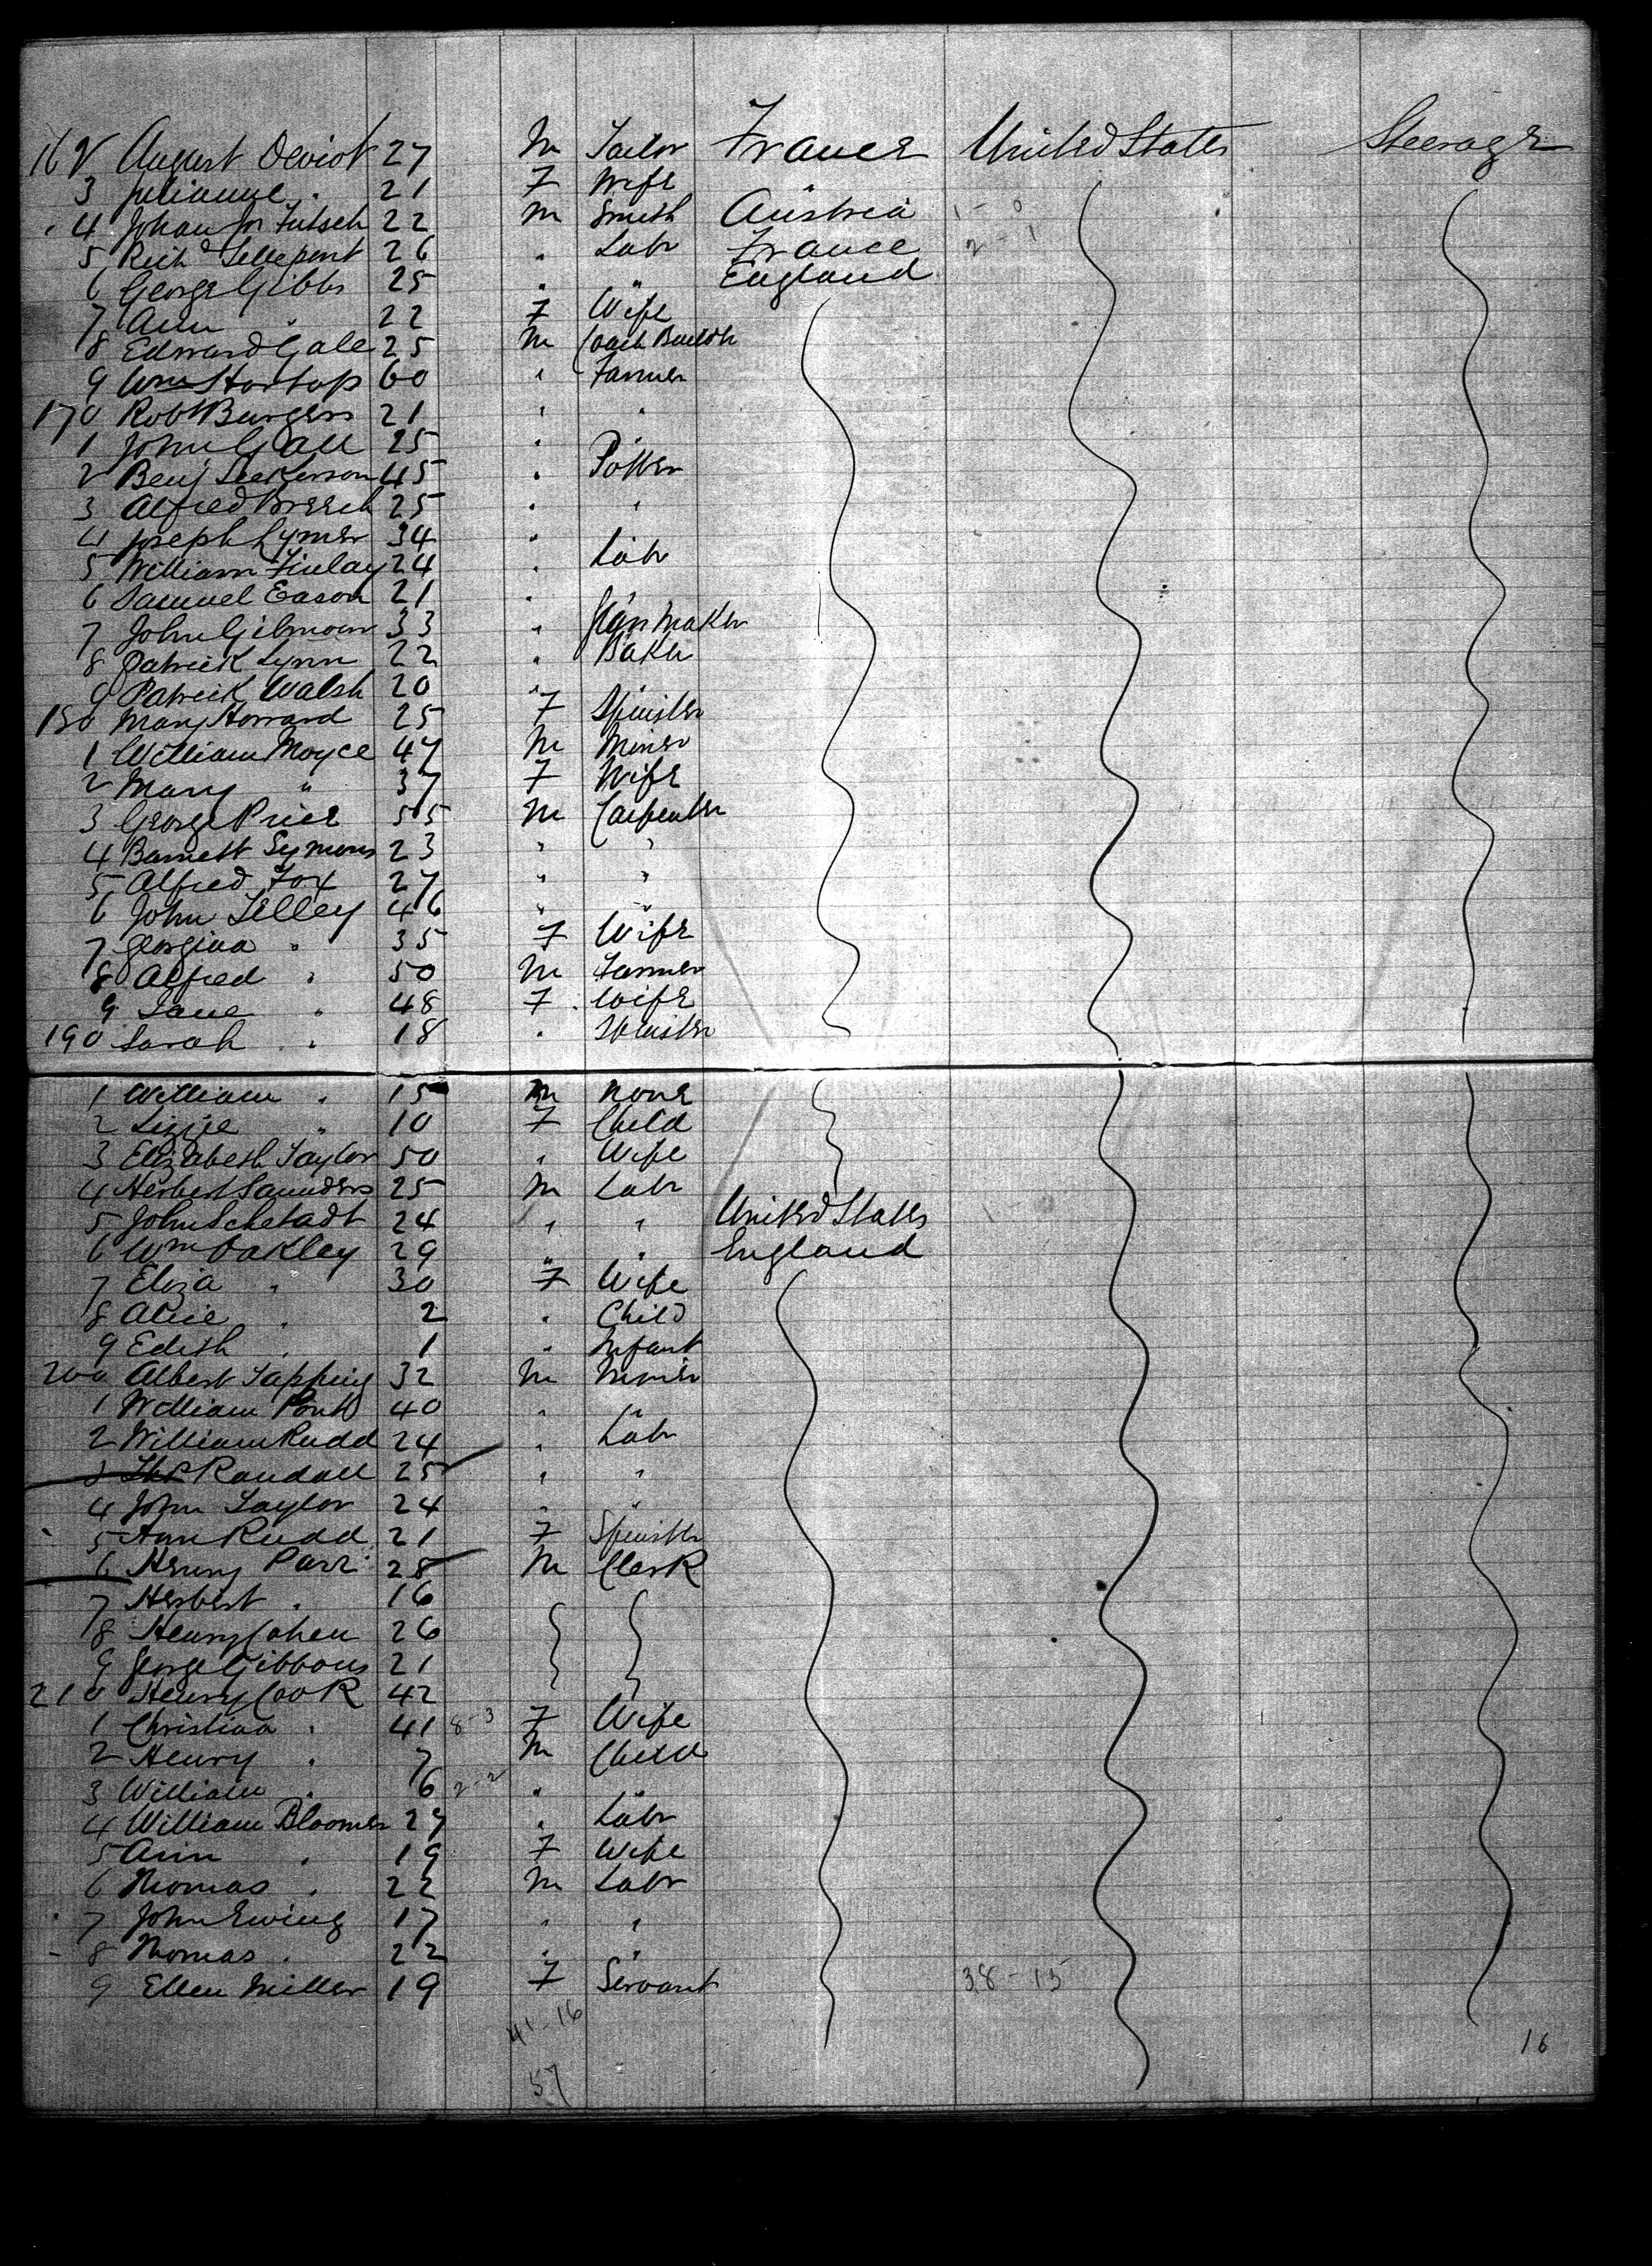 162 August Deviot 27 M Tailor France United States Steerage
3 Julianne " 21 F Wife
4 Johan Jn Futsch 22 M Smith Austria 1-0
5 Richd 26 " Labr France 2-1
6 George Gibbs 25 " " England
7 Ann " 22 F Wife
8 Edward Gale 25 M Coach Builder
9 Wm Hartop 60 " Farmer
170 Robt Burgess 21 " "
1 John Gall 25 " "
2 Benj Seekerson 45 " Potter
3 Alfred Breech 25 " "
4 Joseph Lymer 34 " "
5 William Finlay 24 " Labr
6 Samuel Eason 21 " "
7 John Gilmour 33 " maker
8 Patrick Lynn 22 " Baker
9 Patrick Walsh 20 " "
180 Mary Howard 25 F Spinster
1 William Moyce 47 M Miner
2 Mary " 37 F Wife
3 George Price 55 M Carpenter
4 Barnett Symons 23 " "
5 Alfred Fox 27 " "
6 John Lelley 46 " "
7 Georgina " 35 F Wife
8 Alfred " 50 M Farmer
9 Jane " 48 F Wife
190 Sarah " 18 " Spinster
1 William " 15 M None
2 Lizzie " 10 F Child
3 Elizabeth Taylor 50 " Wife
4 Herbert Saunders 25 M Labr
5 John Schstadt 24 " " United States
6 Wm Oakley 29 " " England
7 Eliza " 30 F Wife
8 Alice " 2 " Child
9 Edith " 1 " Infant
200 Albert Tapping 32 M Miner
1 William Pont 40 " "
2 William Rudd 24 " Labr
3 Thos Randall 25 " "
4 John Taylor 24 " "
5 Ann Rudd 21 F Spinster
6 Henry Parr 28 M Clerk
7 Herbert " 16
8 Henry Cohen 26
9 George Gibbons 21
210 Henry Cook 42
1 Christina " 41 8-3 F Wife
2 Henry " 7 M Child
3 William " 6 2-2 " "
4 William Bloomer 27 " Labr
5 Ann " 19 F Wife
6 Thomas " 22 M Labr
7 John Ewing 17 " "
8 Thomas " 22 " "
9 Ellen Miller 19 F Servant 38-15
41-16
57
16